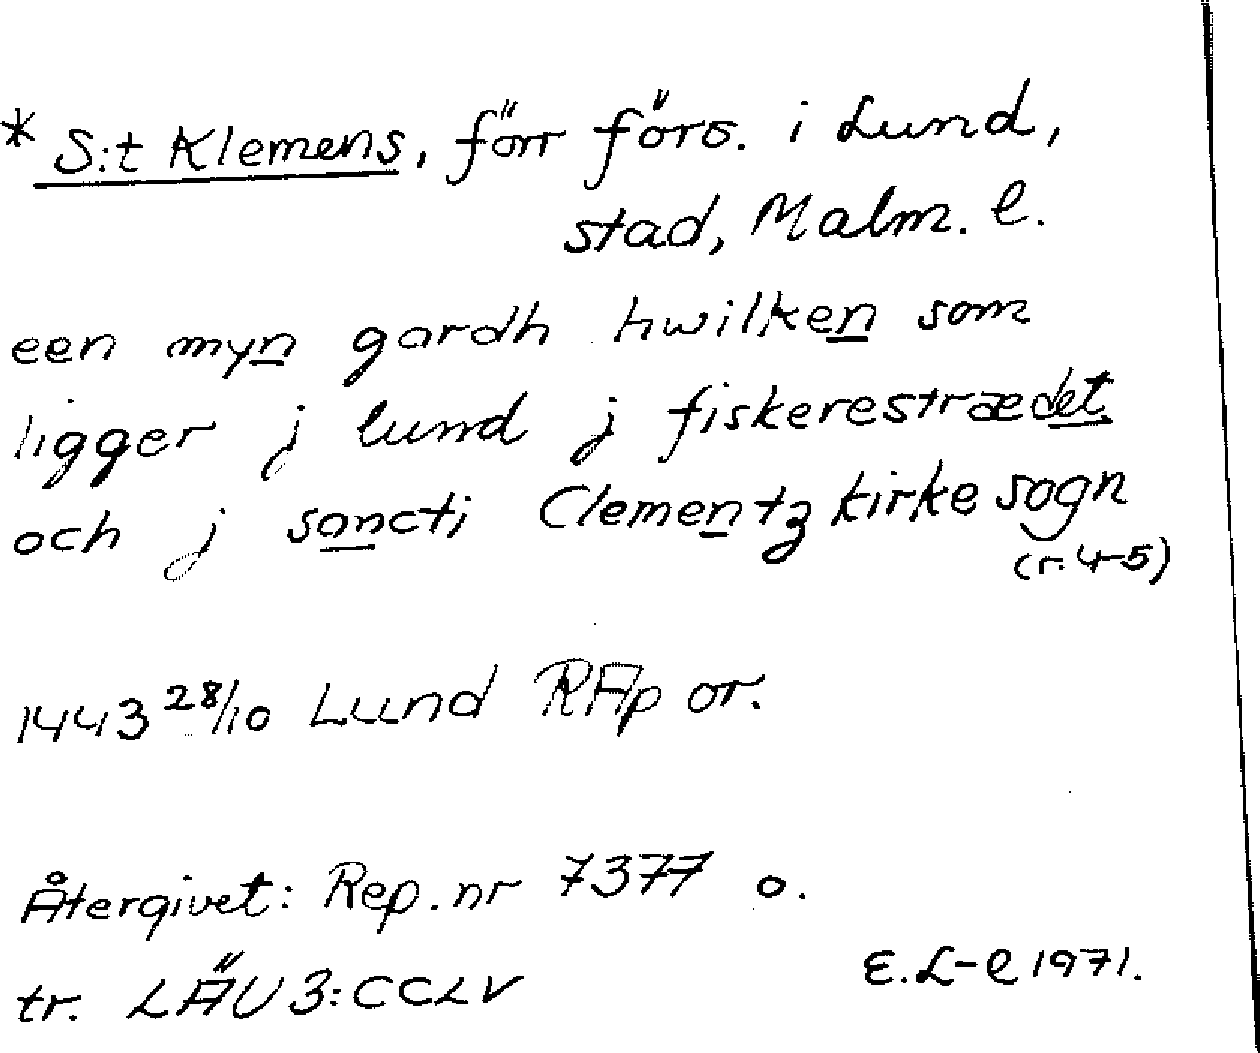 * S:t Klemens, förr förs. i Lund,
stad, Malm. l.
een myn gardh hwilken som
ligger j lund j fiskerestrædet
och j sancti Clementz kirke sogn
(r. 4-5)
1443 28/10 Lund RAp or.
Återgivet: Rep. nr 7377 o.
tr. LÄU 3:CCLV
E.L-l 1971.